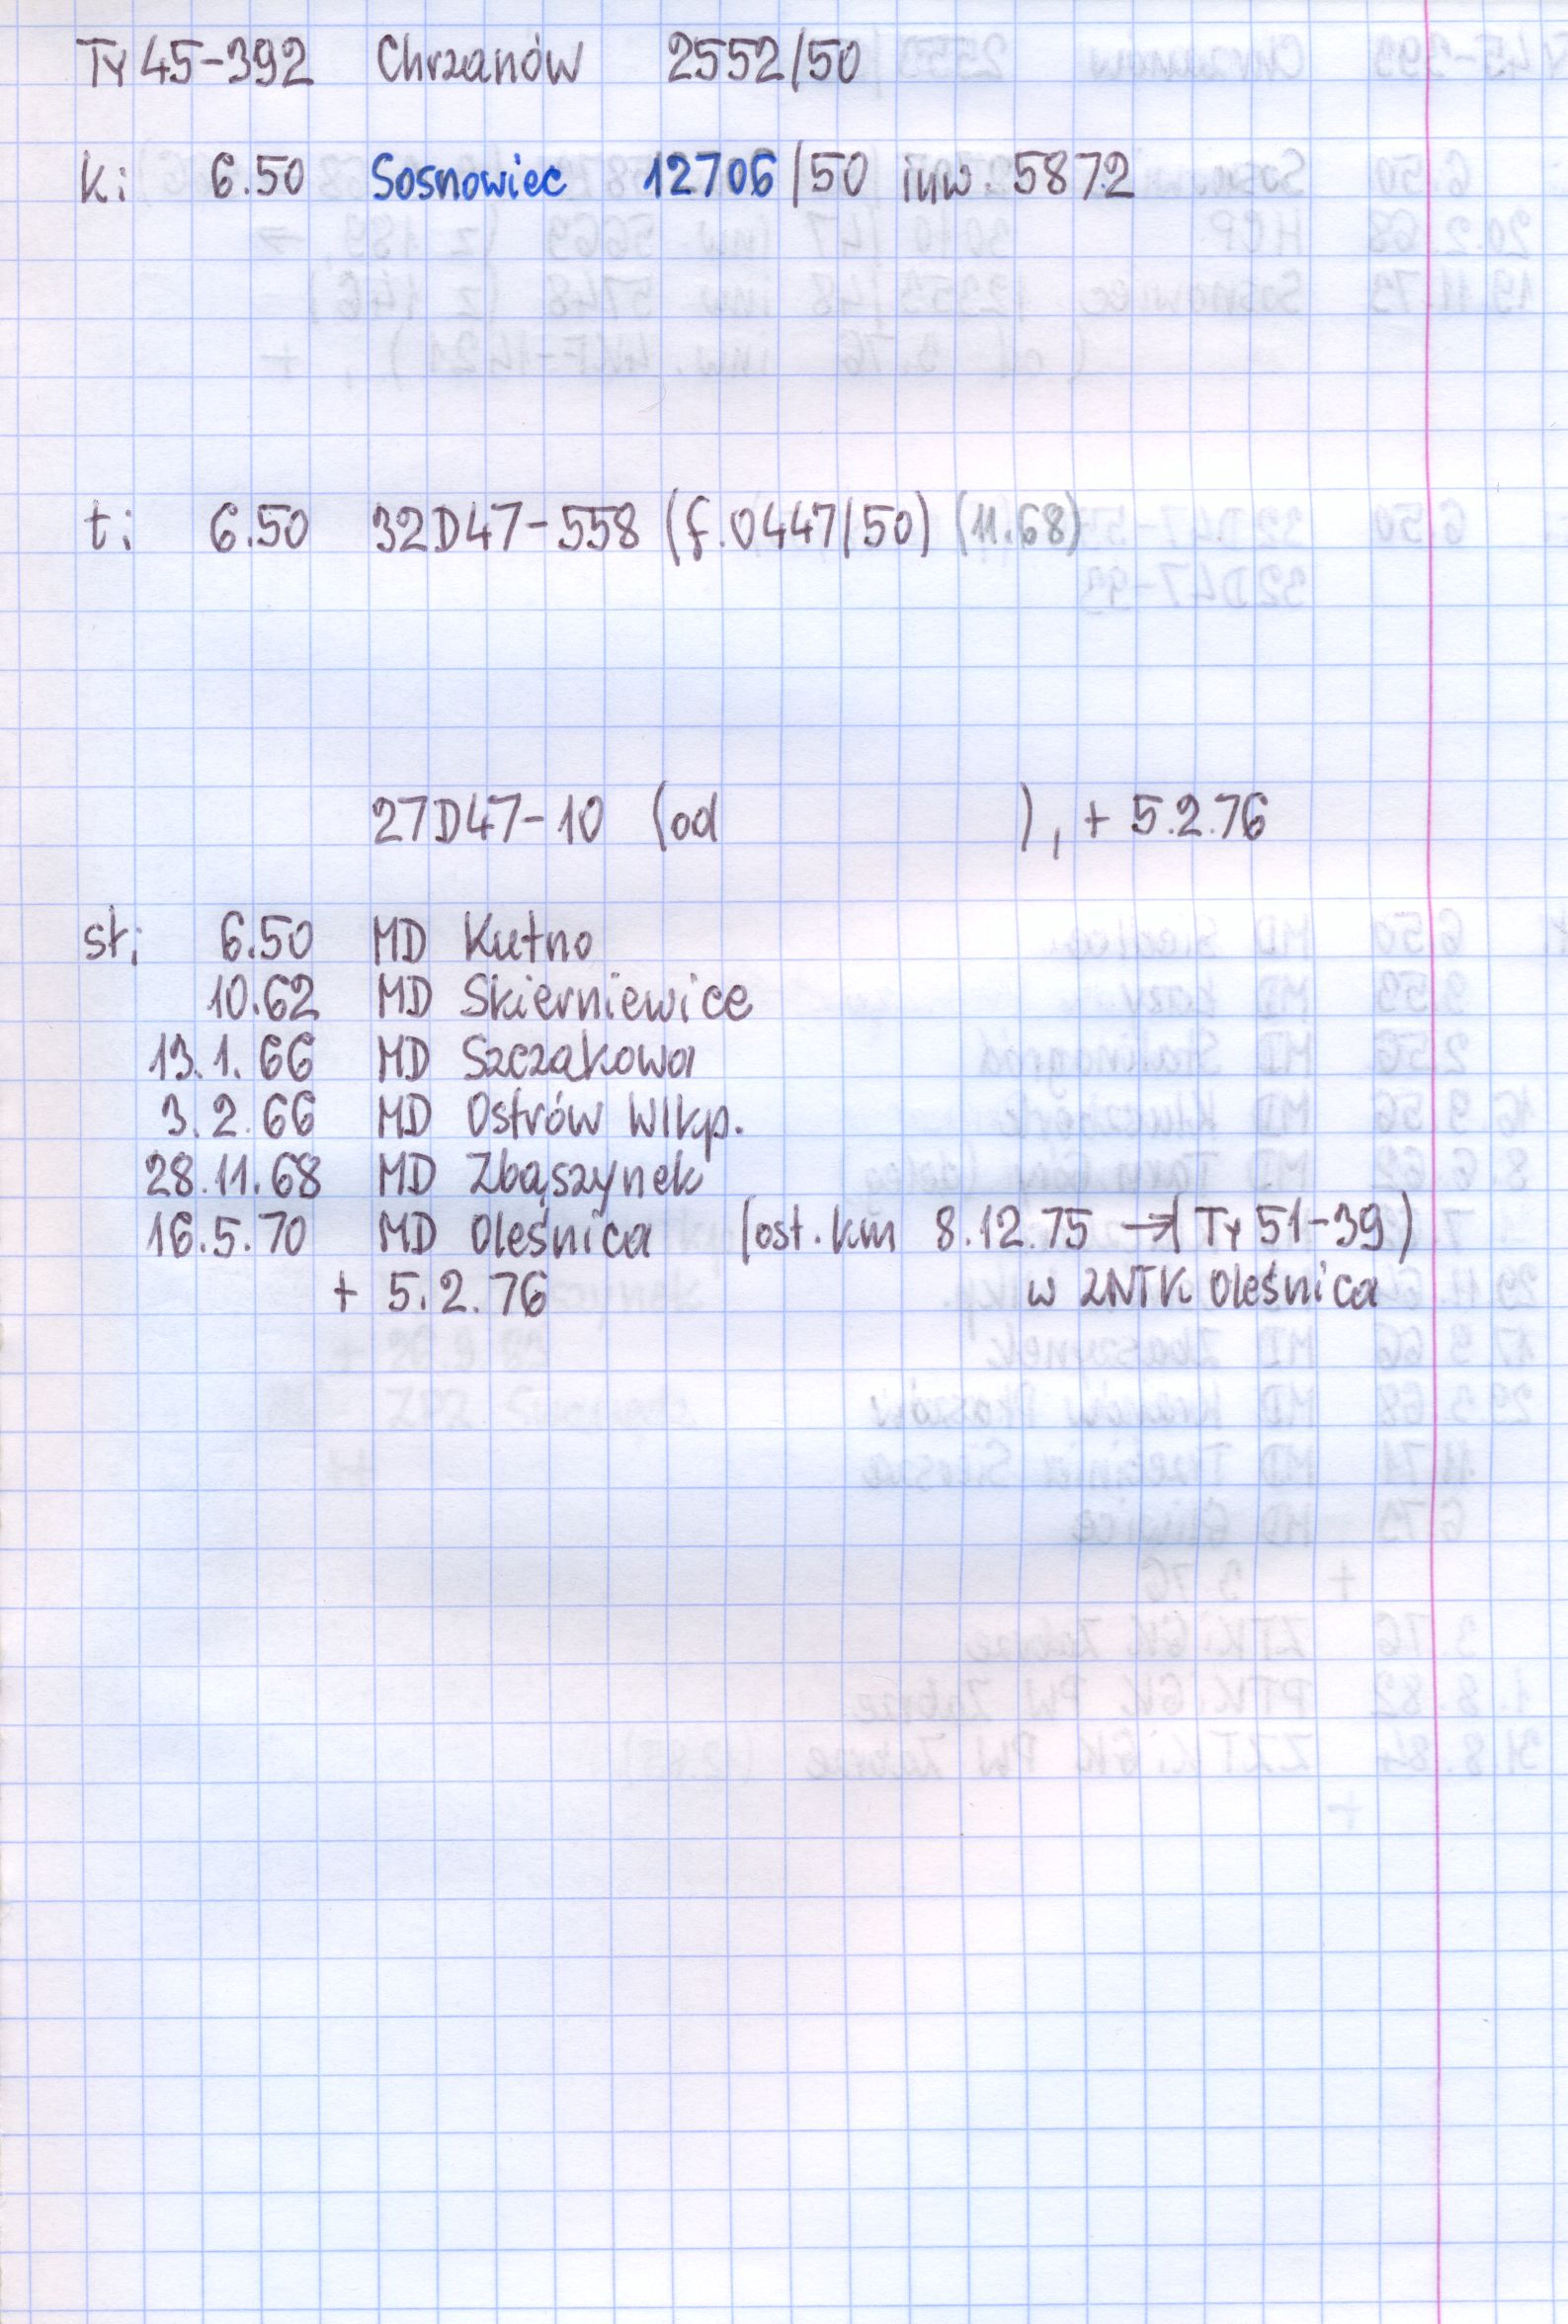 Ty45-392 Chrzanów 2552/50
k: 6.50 Sosnowiec 12706/50 inw. 5872
t: 6.50 32D47-558 (f.0447/50) (11.68)
27D47-10 (od ), + 5.2.76
st: 6.50 MD Kutno
10.62 MD Skierniewice
13.1.66 MD Szczakowa
3.2.66 MD Ostrów Wlkp.
28.11.68 MD Zbąszynek
16.5.70 MD Oleśnica (ost. km 8.12.75 → Ty51-39)
+ 5.2.76 w ZNTK Oleśnica